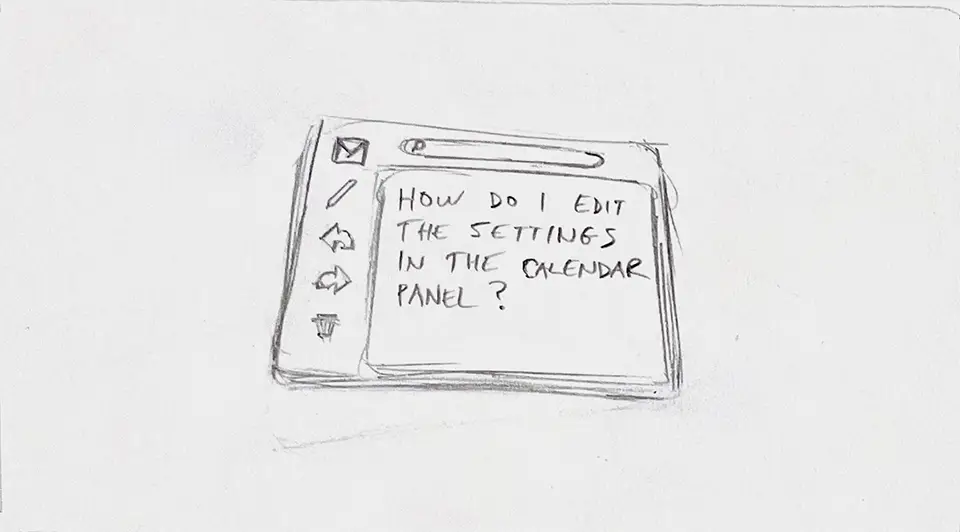 HOW DO I EDIT
THE SETTINGS
IN THE CALENDAR
PANEL?